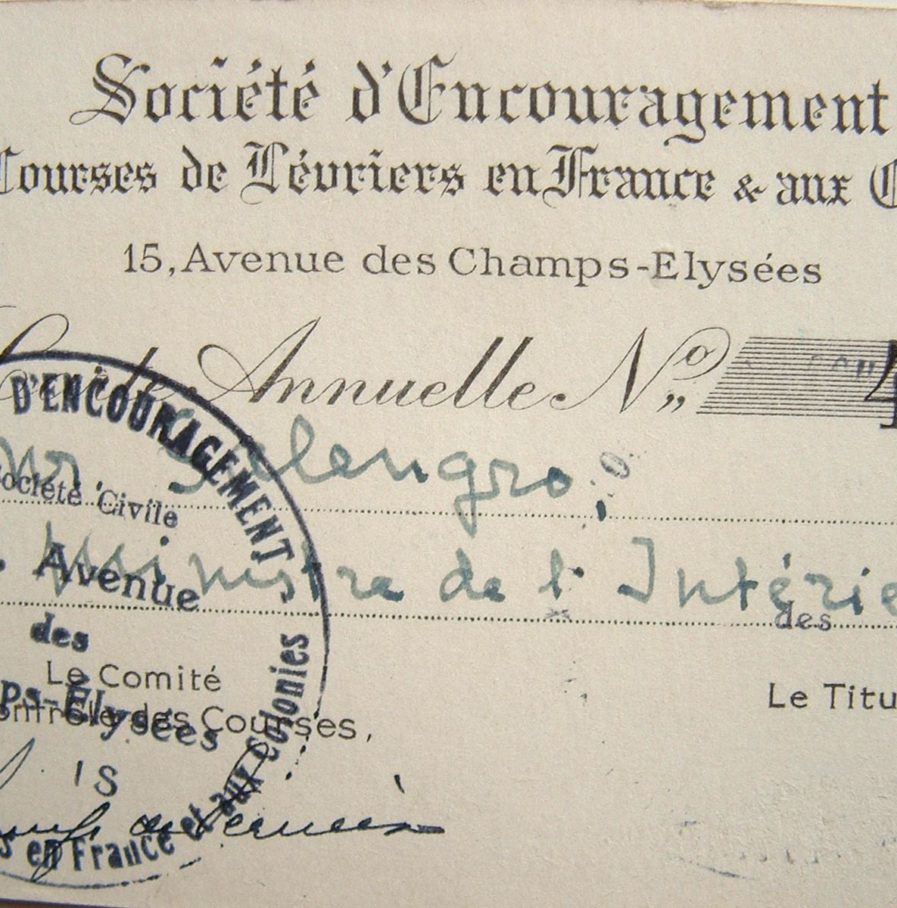 Société d'Encouragement
Courses de Lévriers en France & aux
15, Avenue des Champs-Elysées
Annuelle Nº
Salengro,
Ministre de l'Intérie
des
Le Comité
Le Titu
Contrôle des Courses,
D'ENCOURAGEMENT
Société Civile
Avenue
des
ps-Élysées
en France et aux Colonies